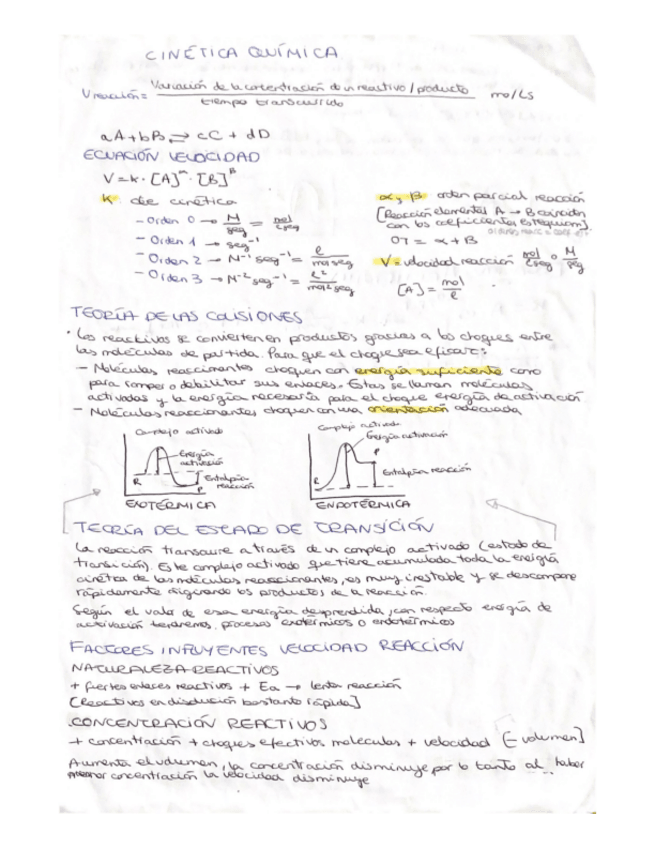 CINÉTICA QUÍMICA
V reacción = Variación de la concentración de un reactivo / producto
tiempo transcurrido
mol/Ls
aA + bB ⇌ cC + dD
ECUACIÓN VELOCIDAD
V = k · [A]^α · [B]^β
K cte cinética
- Orden 0 → M/seg = mol/L seg
- Orden 1 → seg⁻¹
- Orden 2 → M⁻¹ seg⁻¹ = l/mol seg
- Orden 3 → M⁻² seg⁻¹ = l²/mol² seg
α y β orden parcial reacción
[Reacción elemental A → B coinciden
con los coeficientes estequiom]
OT = α + β
V = velocidad reacción mol/L seg o M/seg
[A] = mol/l
TEORÍA DE LAS COLISIONES
· Los reactivos se convierten en productos gracias a los choques entre
las moléculas de partida. Para que el choque sea eficaz:
- Moléculas reaccionantes choquen con energía suficiente como
para romper o debilitar sus enlaces. Estas se llaman moléculas
activadas y la energía necesaria para el choque energía de activación
- Moléculas reaccionantes choquen con una orientación adecuada
Complejo activado
Energía activación
R
Entalpía reacción
P
EXOTÉRMICA
Complejo activado
Energía activación
P
Entalpía reacción
R
ENDOTÉRMICA
TEORÍA DEL ESTADO DE TRANSICIÓN
La reacción transcurre a través de un complejo activado (estado de
transición). Este complejo activado que tiene acumulada toda la energía
cinética de las moléculas reaccionantes, es muy inestable y se descompone
rápidamente originando los productos de la reacción.
Según el valor de esa energía desprendida, con respecto energía de
activación tendremos procesos exotérmicos o endotérmicos
FACTORES INFLUYENTES VELOCIDAD REACCIÓN
NATURALEZA REACTIVOS
+ fuertes enlaces reactivos + Ea → lenta reacción
[Reactivos en disolución bastante rápida]
CONCENTRACIÓN REACTIVOS
+ concentración + choques efectivos moléculas + velocidad [- volumen]
Aumenta el volumen, la concentración disminuye por lo tanto al haber
menor concentración la velocidad disminuye